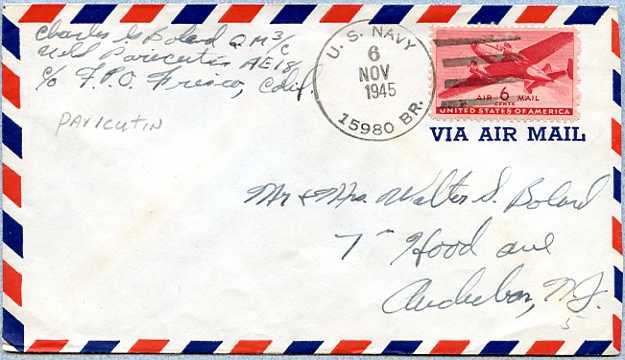 Charles S Boland QM 3/C
USS Paricutin AE18
c/o F.P.O. Frisco, Calif.
PARICUTIN
U. S. NAVY
6
NOV
1945
15980 BR.
AIR 6 MAIL
CENTS
UNITED STATES OF AMERICA
VIA AIR MAIL
Mr & Mrs. Walter S. Boland
7 Hood ave
Audubon, N.J.
5